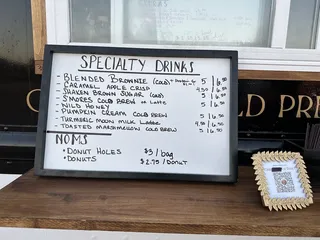 SPECIALTY DRINKS
- BLENDED BROWNIE (COLD) 5 | 6.50
- CARAMEL APPLE CRISP 5 | 6.50
- SHAKEN BROWN SUGAR (COLD) 4.50 | 6.50
- S'MORES COLD BREW OR LATTE 5 | 6.50
- WILD HONEY 5 | 6.50
- PUMPKIN CREAM COLD BREW 5 | 6.50
- TURMERIC MOON MILK LATTE 4.50 | 6.50
- TOASTED MARSHMALLOW COLD BREW 5 | 6.50
NOMS
• DONUT HOLES $3/bag
• DONUTS $2.75/DONUT
C
LD PRE